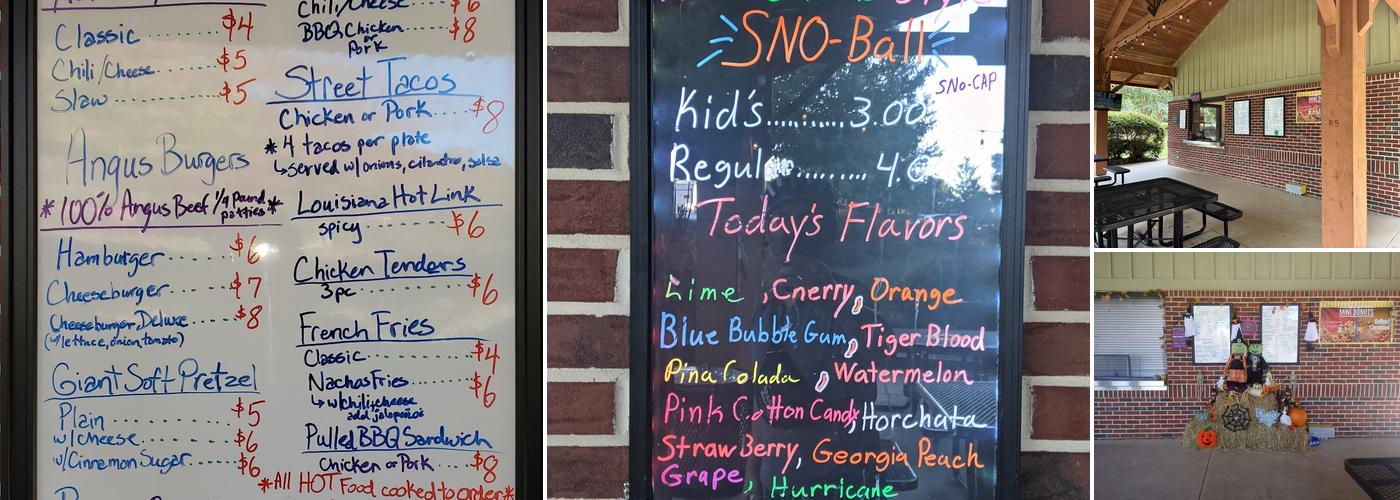 Classic ........ $4
Chili/Cheese ..... $5
Slaw ............ $5
Angus Burgers
*100% Angus Beef 1/4 Pound patties*
Hamburger ........ $6
Cheeseburger ...... $7
Cheeseburger Deluxe .... $8
(w/lettuce, onion, tomato)
Giant Soft Pretzel
Plain ............ $5
w/cheese ......... $6
w/Cinnamon Sugar ..... $6
Chili/Cheese ..... $6
BBQ Chicken ..... $8
or
Pork
Street Tacos
Chicken or Pork .... $8
*4 tacos per plate
↳served w/onions, cilantro, salsa
Louisiana Hot Link
spicy ........ $6
Chicken Tenders
3pc ........ $6
French Fries
Classic ........ $4
Nachos Fries ..... $6
↳w/chili, cheese
add jalapeños
Pulled BBQ Sandwich
Chicken or Pork .... $8
*All HOT Food cooked to order*
Style
SNO-Ball
SNO-CAP
Kid's........... 3.00
Regular......... 4.0
Today's Flavors
Lime, Cherry, Orange
Blue Bubble Gum, Tiger Blood
Pina Colada, Watermelon
Pink Cotton Candy, Horchata
StrawBerry, Georgia Peach
Grape, Hurricane
MINI DONUTS